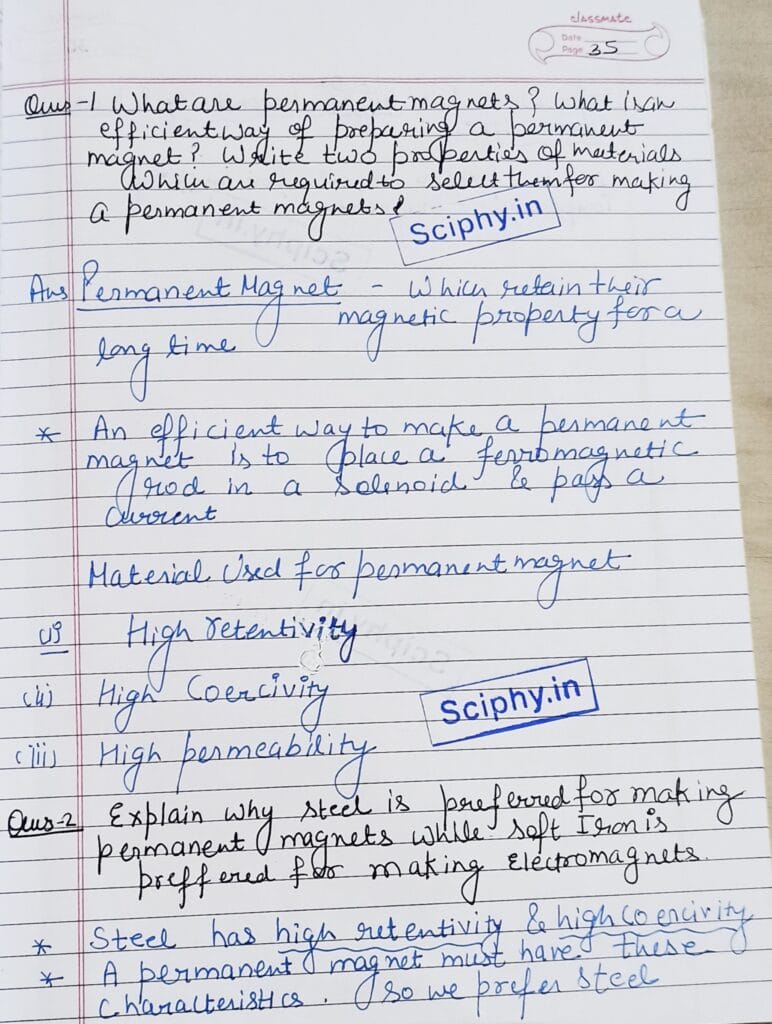 classmate
Date
Page 35
Ques-1 What are permanent magnets? What is an
efficient way of preparing a permanent
magnet? Write two properties of materials
which are required to select them for making
a permanent magnets?
Sciphy.in
Ans Permanent Magnet - Which retain their
magnetic property for a
long time
* An efficient way to make a permanent
magnet is to place a ferromagnetic
rod in a solenoid & pass a
current
Material Used for permanent magnet
(i) High retentivity
(ii) High Coercivity
Sciphy.in
(iii) High permeability
Ques-2 Explain why steel is preferred for making
permanent magnets while soft Iron is
preffered for making Electromagnets.
* Steel has high retentivity & high coercivity
* A permanent magnet must have these
characteristics. So we prefer steel